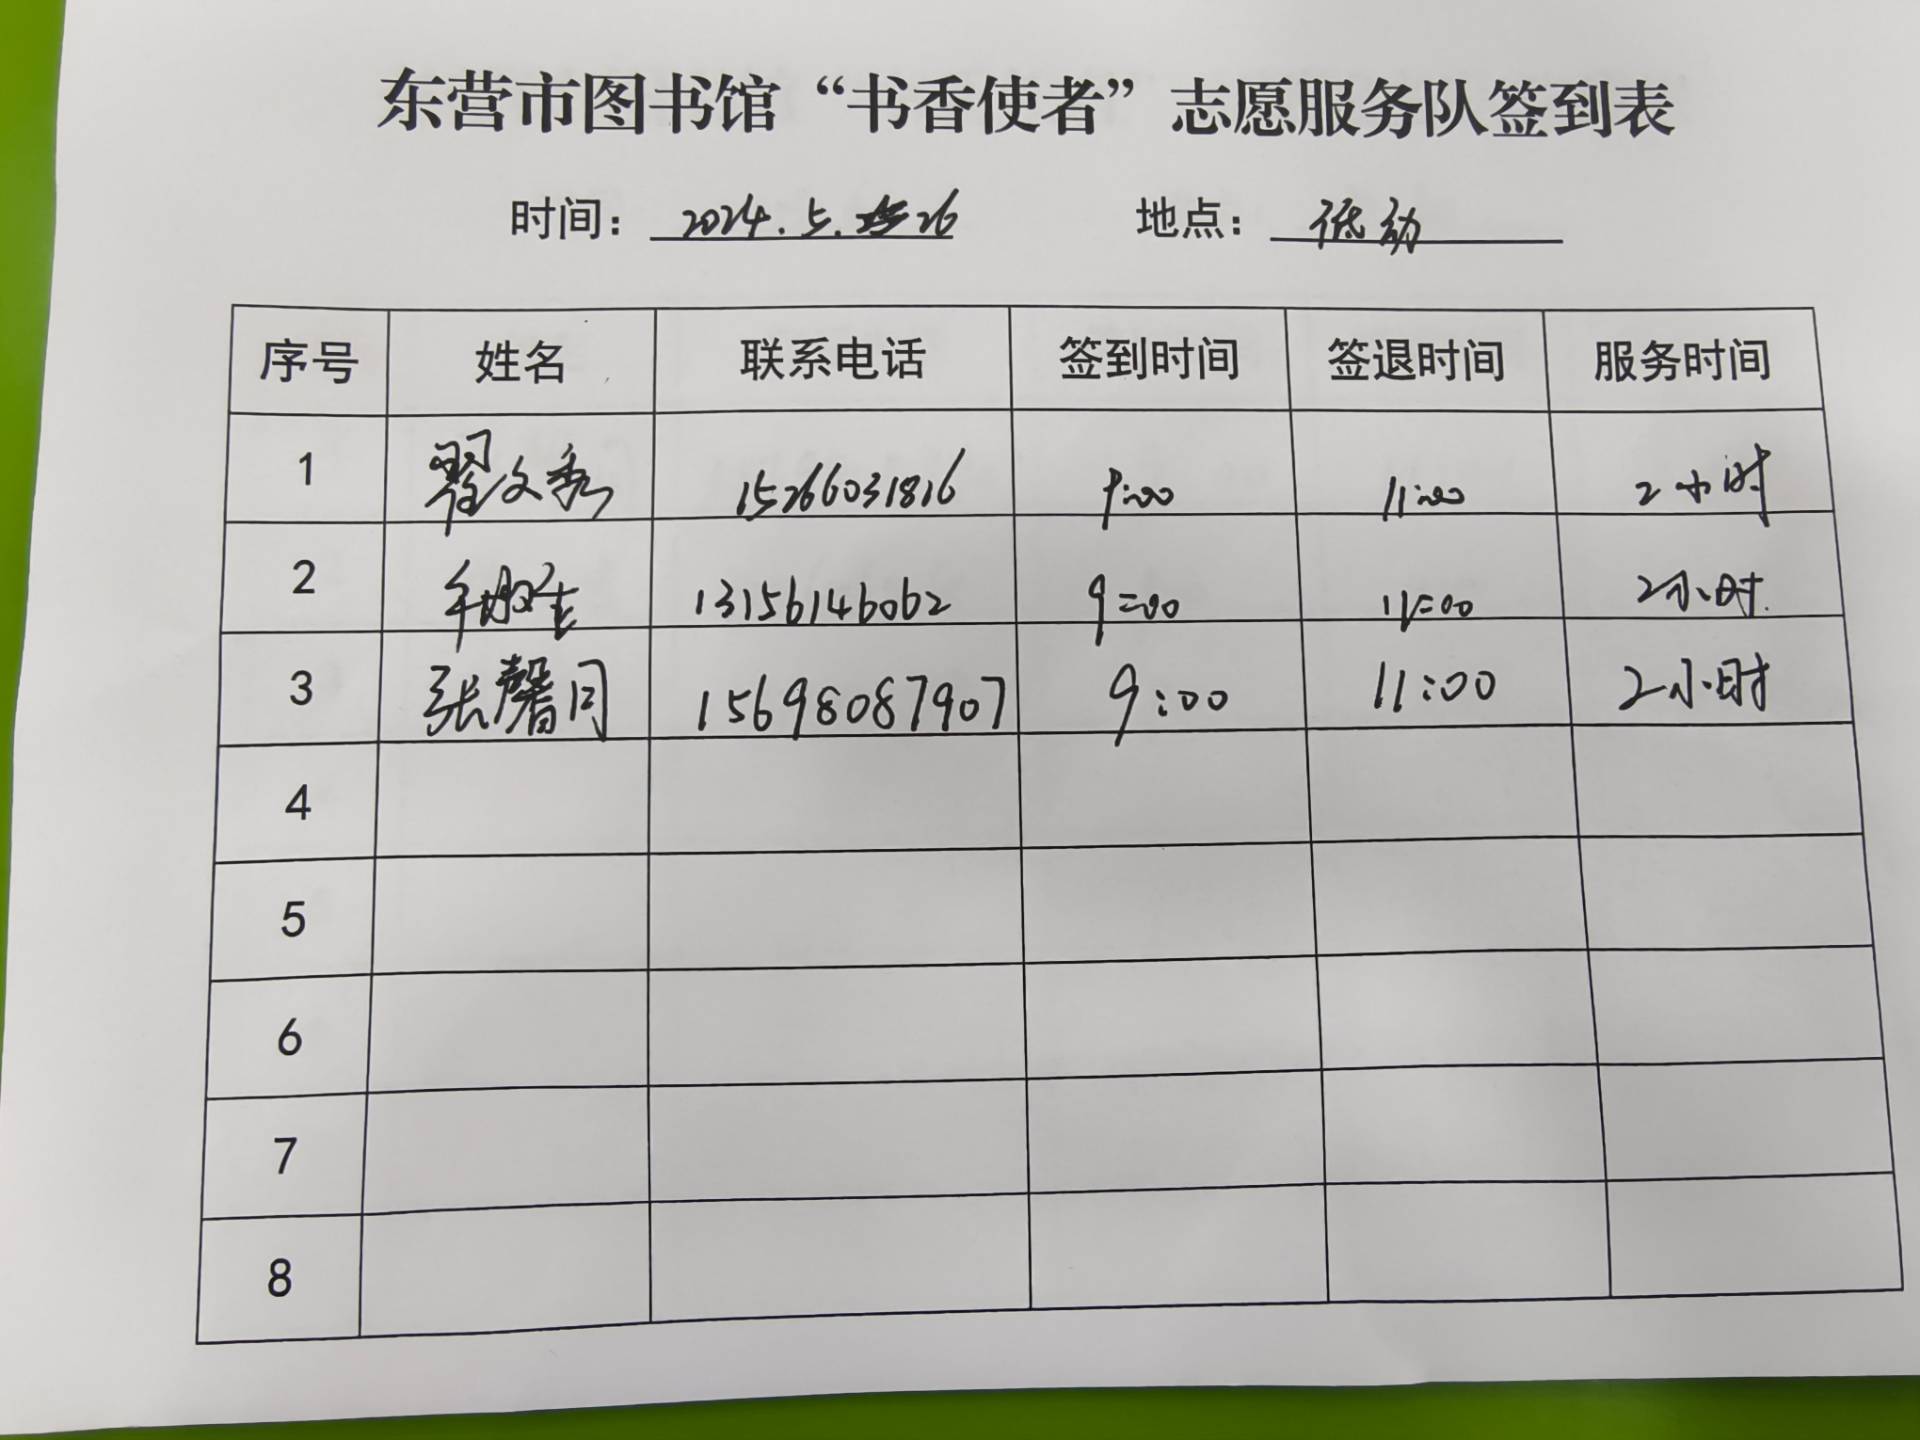 东营市图书馆“书香使者”志愿服务队签到表
时间： 2024.5.26 地点： 低幼
序号 姓名 联系电话 签到时间 签退时间 服务时间
1 翟文秀 15266031816 9:00 11:00 2小时
2 13156146062 9:00 11:00 2小时
3 张馨月 15698087907 9:00 11:00 2小时
4
5
6
7
8